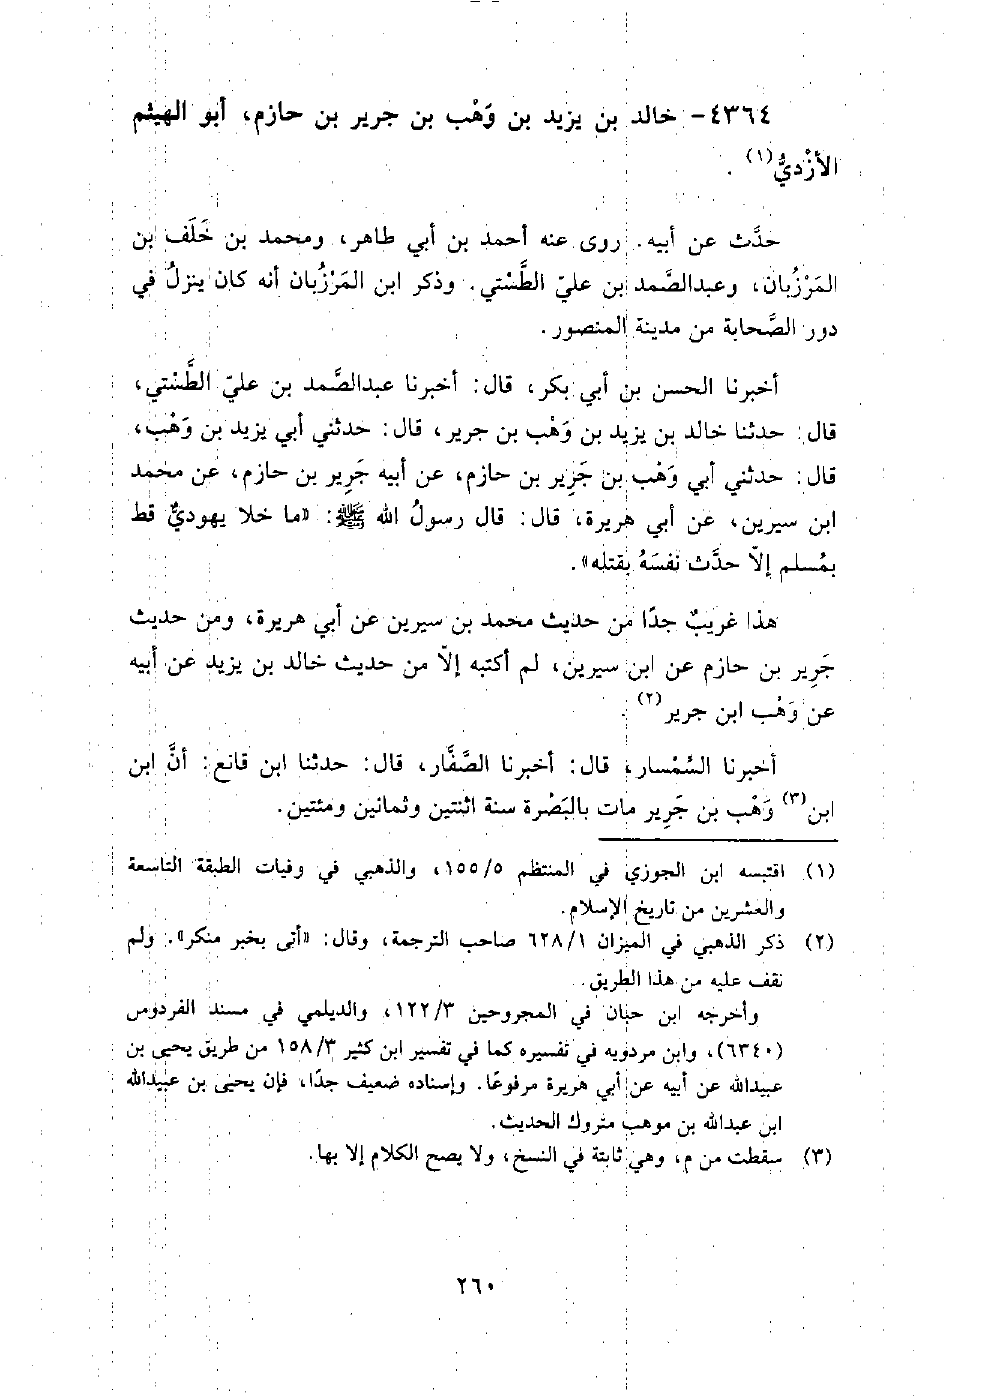 ٤٣٦٤- خالد بن يزيد بن وَهْب بن جرير بن حازم، أبو الهيثم
الأزْديُّ(١).
حدَّث عن أبيه. روى عنه أحمد بن أبي طاهر، ومحمد بن خَلَف بن
المَرْزُبان، وعبدالصَّمد بن عليّ الطَّسْتي. وذكر ابن المَرْزُبان أنه كان ينزلُ في
دور الصَّحابة من مدينة المنصور.
أخبرنا الحسن بن أبي بكر، قال: أخبرنا عبدالصَّمد بن عليّ الطَّسْتي،
قال: حدثنا خالد بن يزيد بن وَهْب بن جرير، قال: حدثني أبي يزيد بن وَهْب،
قال: حدثني أبي وَهْب بن جَرِير بن حازم، عن أبيه جَرِير بن حازم، عن محمد
ابن سيرين، عن أبي هريرة، قال: قال رسولُ الله ﷺ: «ما خلا يهوديٌّ قط
بمُسلم إلاّ حدَّث نفسَهُ بقتله».
هذا غريبٌ جدًا من حديث محمد بن سيرين عن أبي هريرة، ومن حديث
جَرِير بن حازم عن ابن سيرين، لم أكتبه إلاّ من حديث خالد بن يزيد عن أبيه
عن وَهْب ابن جرير(٢).
أخبرنا السِّمْسار، قال: أخبرنا الصَّفَّار، قال: حدثنا ابن قانع: أنَّ ابن
ابن(٣) وَهْب بن جَرِير مات بالبَصْرة سنة اثنتين وثمانين ومئتين.
(١) اقتبسه ابن الجوزي في المنتظم ١٥٥/٥، والذهبي في وفيات الطبقة التاسعة
والعشرين من تاريخ الإسلام.
(٢) ذكر الذهبي في الميزان ٦٢٨/١ صاحب الترجمة، وقال: «أتى بخبر منكر». ولم
نقف عليه من هذا الطريق.
وأخرجه ابن حبان في المجروحين ١٢٢/٣، والديلمي في مسند الفردوس
(٦٣٤٠)، وابن مردويه في تفسيره كما في تفسير ابن كثير ١٥٨/٣ من طريق يحيى بن
عبيدالله عن أبيه عن أبي هريرة مرفوعًا. وإسناده ضعيف جدًا، فإن يحيى بن عبيدالله
ابن عبدالله بن موهب متروك الحديث.
(٣) سقطت من م، وهي ثابتة في النسخ، ولا يصح الكلام إلا بها.
٢٦٠